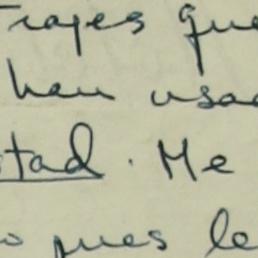 Trajes que
han usad
stad. Me
o pues le